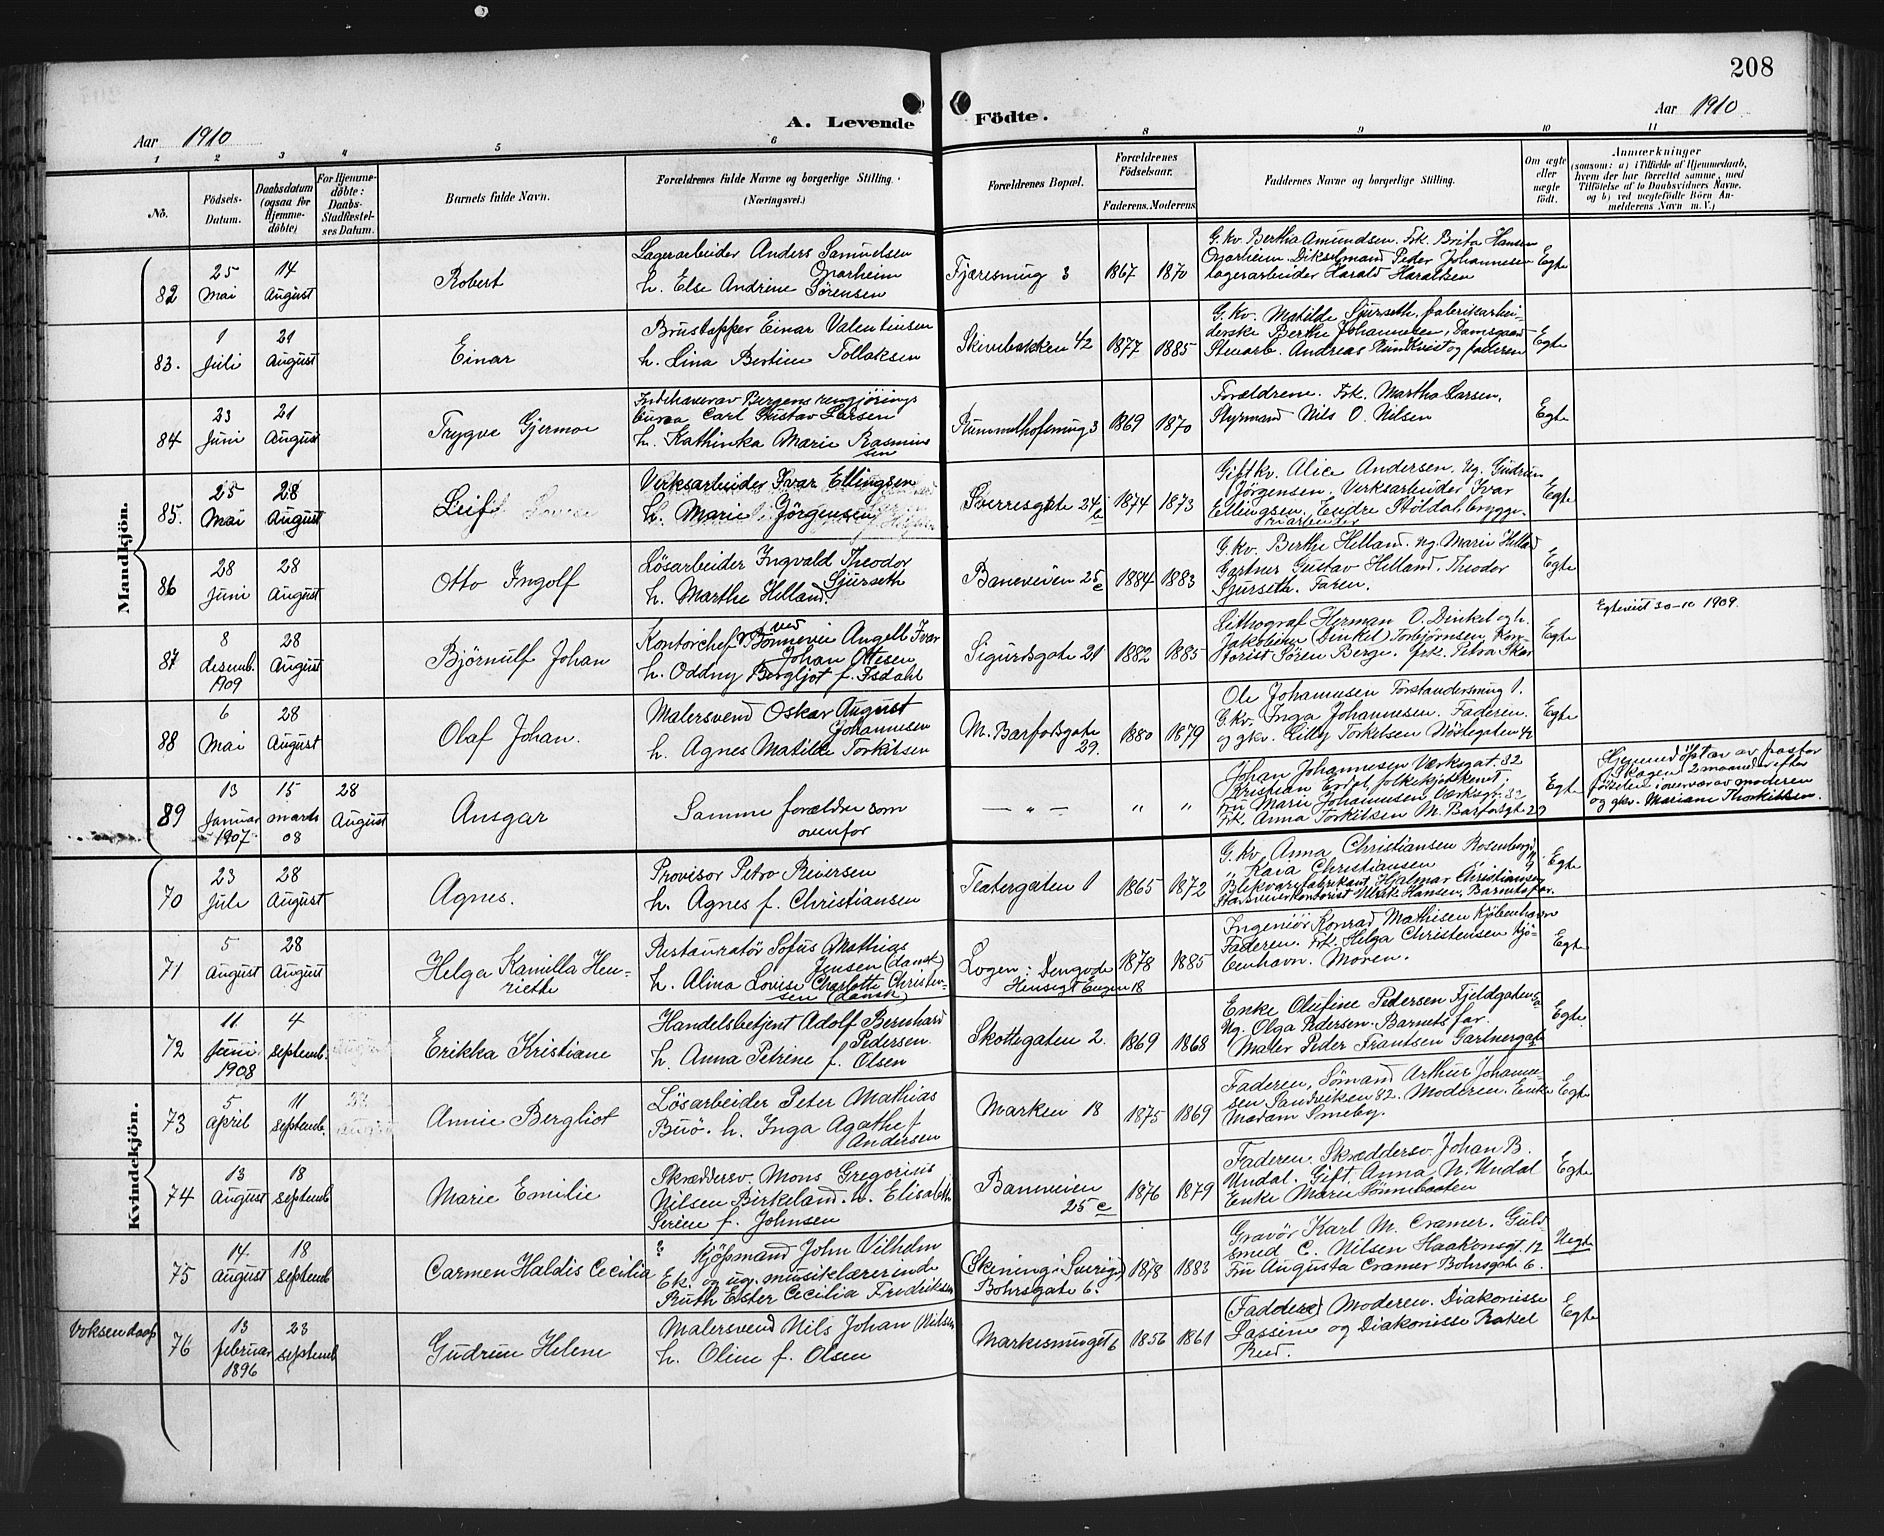 208
A. Levende Födte.
Aar 1910
Aar 1910
1 2 3 4 5 6 8 9 10 11
No.
Födsels-
Datum.
Daabsdatum
(ogsaa for
Hjemme-
döbte)
For Hjemme-
döbte:
Daabs-
Stadfæstel-
ses Datum.
Barnets fulde Navn.
Forældrenes fulde Navne og borgerlige Stilling.
(Næringsvei.)
Forældrenes Bopæl.
Forældrenes
Födselsaar.
Faderens. Moderens
Faddernes Navne og borgerlige Stilling.
Om ægte
eller
uægte
födt.
Anmærkninger
(saasom: a) i Tilfælde af Hjemmedaab,
hvem der har forrettet samme, med
Tilföielse af to Daabsvidners Navne.
og b) ved uægtefödte Börn An-
melderens Navn m. V.)
Mandkjön.
82
25
Mai
14
August
Robert
Lagerarbeider Anders Samuelsen
Oparheim
h. Else Andrine Sørensen
Tjæresmug 3
1867
1870
G. kv. Bertha Amundsen. Frk. Brita Hansen
Oparheim. Peder Johannesen
Lagerarbeider Harald Haraldsen
Egte
83.
1
Juli
21
August
Einar
Brustapper Einar Valentinsen
h. Lina Bertine Tollaksen
Skivebakken 42
1877
1885
G. kv. Matilde Sjurseth, fabrikarbei-
derske Berthe Johannesen, Damsgaard
Stenarb. Andreas Rundkvist og faderen
Egte
84
23
Juni
21
August
Trygve Gjermoe
Indehaver av Bergens rengjørings
buraa Carl Gustav Larsen
h. Kathinka Marie Rasmus
sen
Rummelhofsmug 3
1869
1870
Forældrene. Frk. Martha Larsen,
Styrmand Nils O. Nilsen
Egte
85.
25
Mai
28
August
Leif
Verksarbeider Ivar Ellingsen
h. Marie Jörgensen
Sverresgate 24 b
1874
1873
Gift kv. Alice Andersen. Ug. Gudrun
Jörgensen. Verksarbeider Ivar
Ellingsen. Endre Stöldal brygge-
riarbeider
Egte
86
28
Juni
28
August
Otto Ingolf
Lösarbeider Ingvald Theodor
Sjurseth
h. Marthe Helland.
Baneveien 25 c
1884
1883
G. kv. Berthe Helland. Ug. Marie Helland
Gartner Gustav Helland. Theodor
Sjurseth. Faren.
Egte
87
8
desemb.
1909
28
August
Björnulf Johan
Kontorchef ved Bonnevie Angell Ivar
Johan Ottesen
h. Oddny Bergljot f. Isdahl
Sigurdsgate 21
1882
1885
Lithograf Herman O. Dinkel og h.
Jakobine (Dinkel) Torbjørnsen. Kon-
torist Sören Berge. Frk. Petra Skar
Egte
Egteviet 30-10 1909.
88
6
Mai
28
August
Olaf Johan.
Malersvend Oskar August
Johannesen
h. Agnes Matilde Torkilsen
M. Barfodsgate
29.
1880
1879
Ole Johannesen Forstandersmug 1.
G. kv. Inga Johannesen. Faderen.
og gkv. Lilly Torkelsen Nöstegaten 42
Egte
89
13
Januar
1907
15
marts
08
28
August
Ansgar
Samme forældre som
ovenfor
— " —
"
"
Johan Johannesen Verksgat. 32
Kristian folkekjökkent.
Fru Marie Johannesen Verksgt. 32
Frk. Anna Torkilsen M. Barfodsgt 29
Egte
Hjemmedöpt av pastor
Skagen 2 maaneder efter
födselen i overvær av moderen
og gkv. Mariane Thorkildsen.
Kvindekjön.
70
23
Juli
28
August
Agnes.
Provisor Petro Reiersen
h. Agnes f. Christiansen
Teatergaten 1
1865
1872
G. kv. Anna Christiansen Rosenbergsg.
" Kaia Christiansen
Blikvarefabrikant Hjalmar Christiansen
Hansen. Barnets far.
Egte
71
5
August
28
August
Helga Kamilla Hen-
riette
Restauratör Sofus Mathias
Jensen (dansk)
h. Alina Lovise Charlotte Christen-
sen (dansk)
Logen: Dengode
Hensigt Engen 18
1878
1885
Ingeniör Konrad Mathisen Kjöbenhavn
Faderen. Frk. Helga Christensen Kjö-
benhavn. Moren.
Egte
72
11
Juni
1908
4
septemb.
Erikka Kristiane
Handelsbetjent Adolf Bernhard
Pedersen
h. Anna Petrine f. Olsen
Skottegaten 2.
1869
1868
Enke Olufine Pedersen Fjeldgaten
Ug. Olga Pedersen. Barnets far.
Maler Peder Frantsen Gartnergate
Egte
73
5
April
11
septemb.
Annie Bergliot
Lösarbeider Peter Mathias
Buö. h. Inga Agathe f.
Andersen
Marken 18
1875
1869
Faderen, Sömand Arthur Johanne-
sen Sandviken 82. Moderen. Enke
Madam Smeby.
Egte
74
13
August
18
septemb
Marie Emilie
Skræddersv. Mons Gregorius
Nilsen Birkeland. h. Elisabeth
Serine f. Johnsen
Baneveien
25 c
1876
1879
Faderen. Skræddersv. Johan B.
Undal. Gift Anna N. Undal
Enke Marie Sönnebaaten
Egte
75
14.
August
18
septemb
Carmen Haldis Cecilia
Kjöpmand John Vilhelm
Ek. og ug. musiklærerinde
Ruth Ester Cecilia Fredriksen
(Skening i Sverige)
Bohrsgate 6.
1878
1883
Gravör Karl M. Cramer. Guld-
smed C. Nilsen Haakonsgt. 12
Fru Augusta Cramer Bohrsgate 6.
Uegte
Voksendaap
76
13
februar
1896
23
septemb
Gudrun Helene
Malersvend Nils Johan Nilsen
h. Oline f. Olsen
Markesmuget 6
1856
1861
(Faddere) Moderen. Diakonisse
Lassine og Diakonisse Rakel
Rud.
Egte